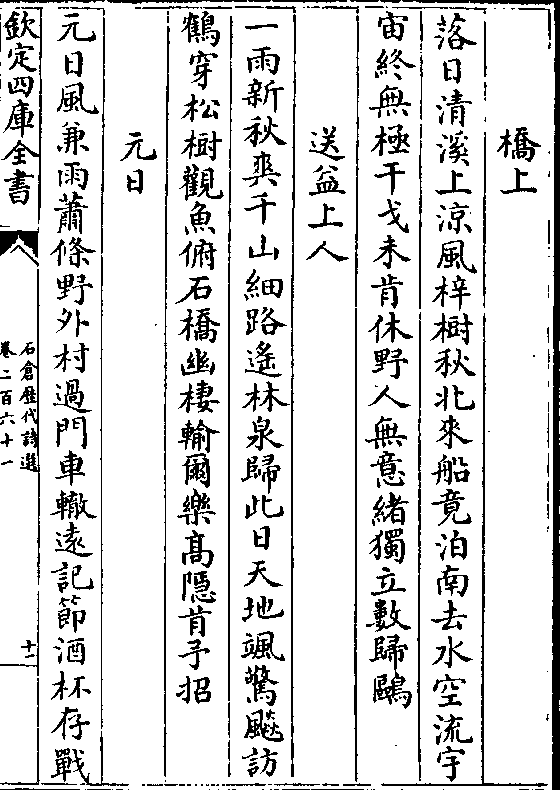 橋上
落日清溪上涼風梓樹秋北來船竟泊南去水空流宇
宙終無極干戈未肯休野人無意緒獨立數歸鷗
送益上人
一雨新秋爽千山細路遙林泉歸此日天地颯驚飈訪
鶴穿松樹觀魚俯石橋幽棲輸爾樂髙隠肯予招
元日
元日風兼雨蕭條野外村過門車轍遠記節酒杯存戰
欽定四庫全書
石倉歷代詩選
卷二百六十一
十一